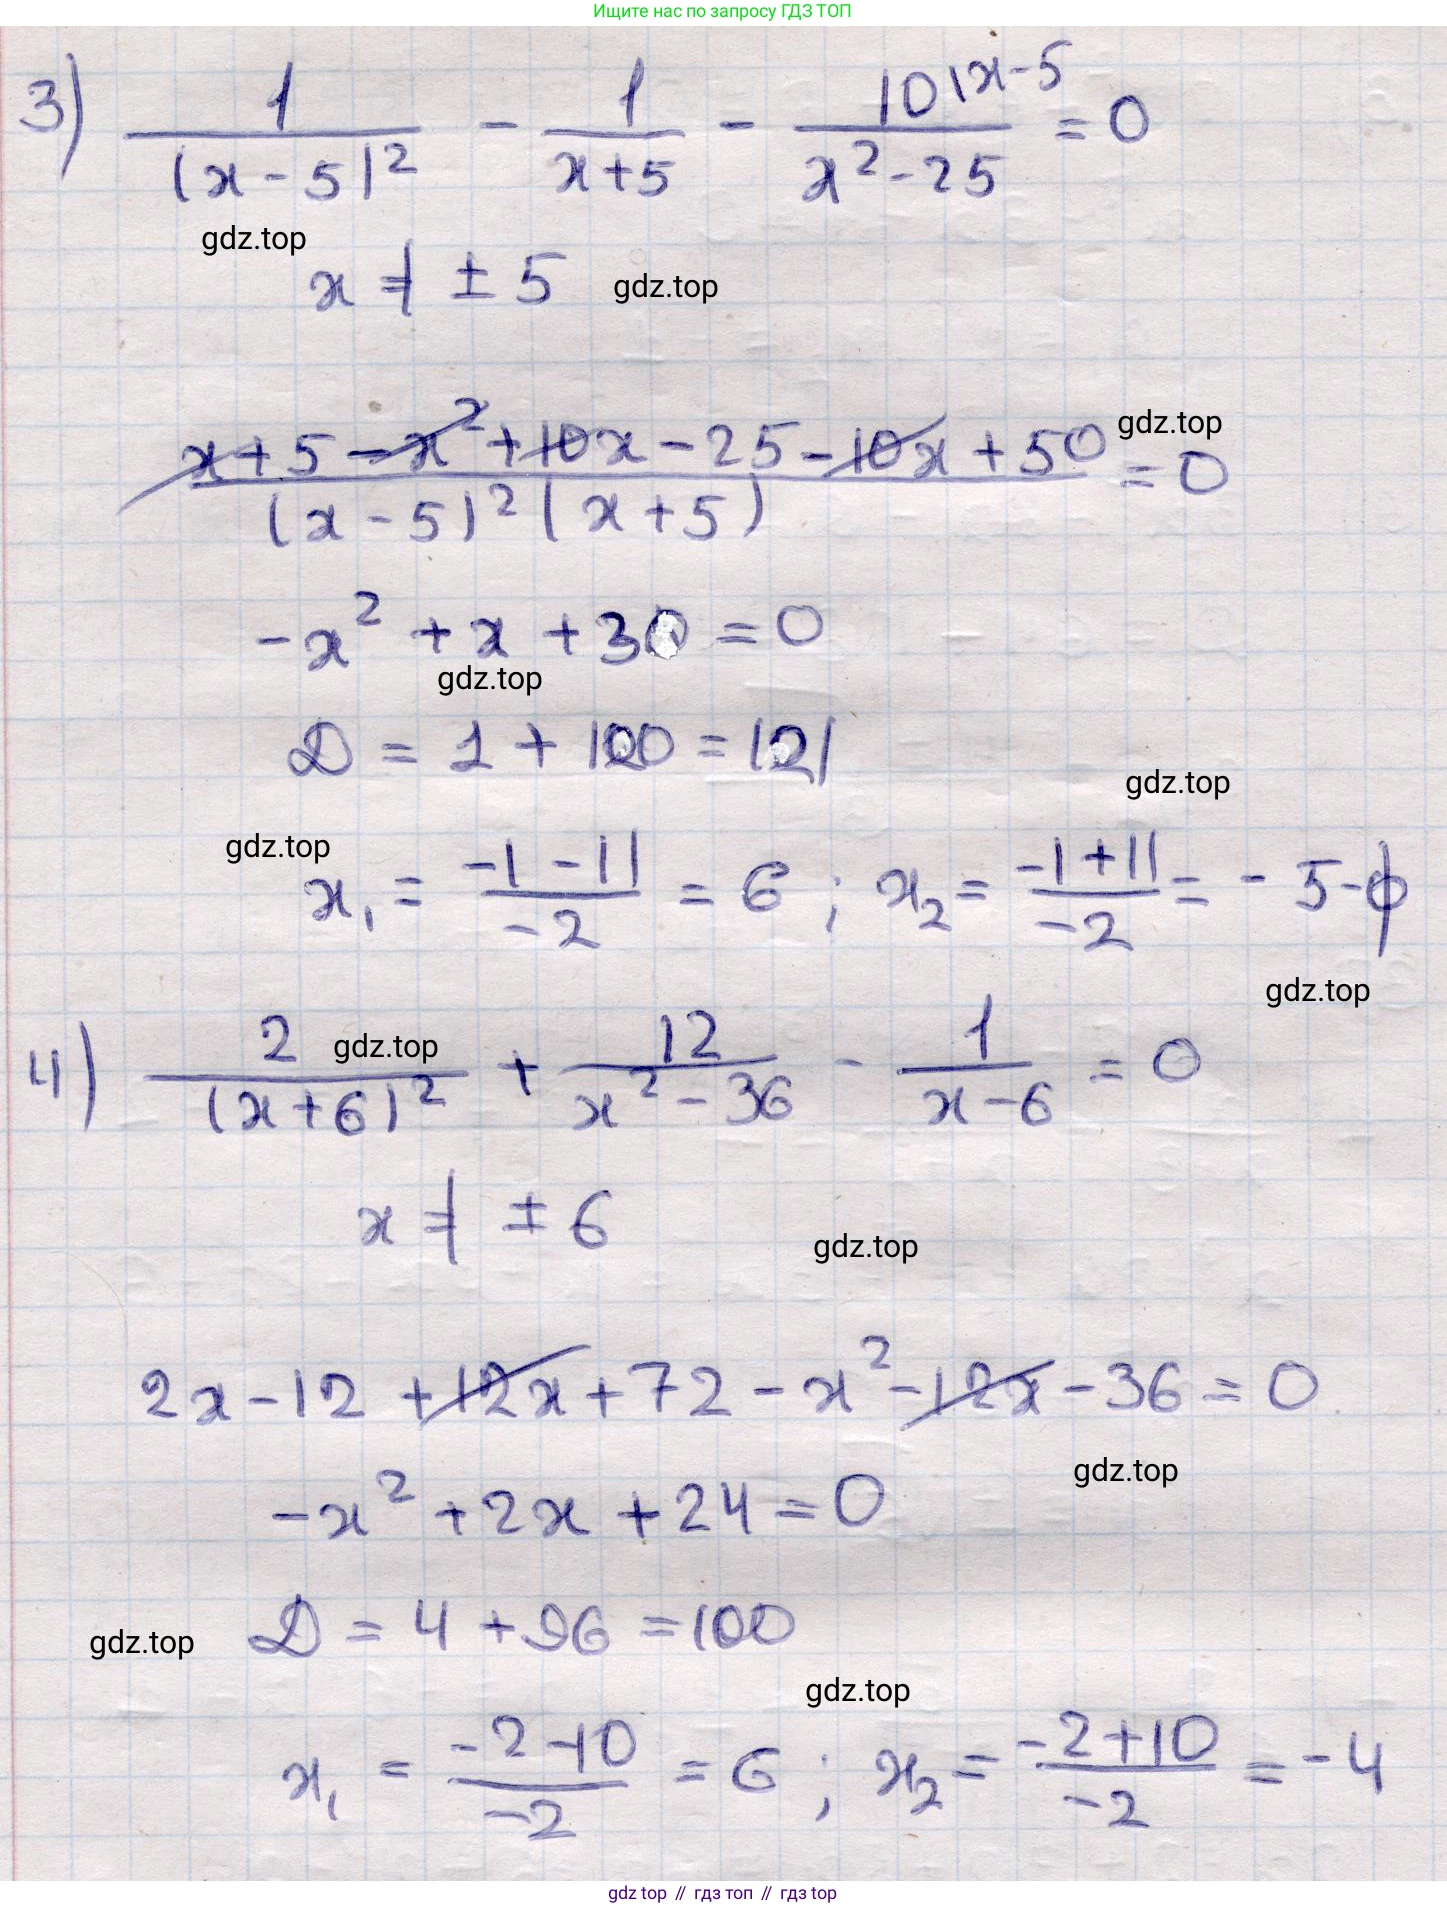 Ищите нас по запросу ГДЗ ТОП
3) 1/(x-5)² - 1/(x+5) - 10(x-5/(x²-25) = 0
gdz.top
x ≠ ± 5 gdz.top
gdz.top
(x+5-x²+10x-25-10x+50)/((x-5)²(x+5)) = 0
-x² + x + 30 = 0
gdz.top
D = 1 + 120 = 121
gdz.top
gdz.top
x₁ = (-1-11)/(-2) = 6 ; x₂ = (-1+11)/(-2) = -5-ф
gdz.top
4) 2/(x+6)² + 12/(x²-36) - 1/(x-6) = 0
gdz.top
x ≠ ± 6
gdz.top
2x-12+12x+72-x²-12x-36=0
gdz.top
-x²+2x+24=0
gdz.top
D = 4+96=100
gdz.top
x₁ = (-2-10)/(-2) = 6 ; x₂ = (-2+10)/(-2) = -4
gdz top // гдз топ // гдз top